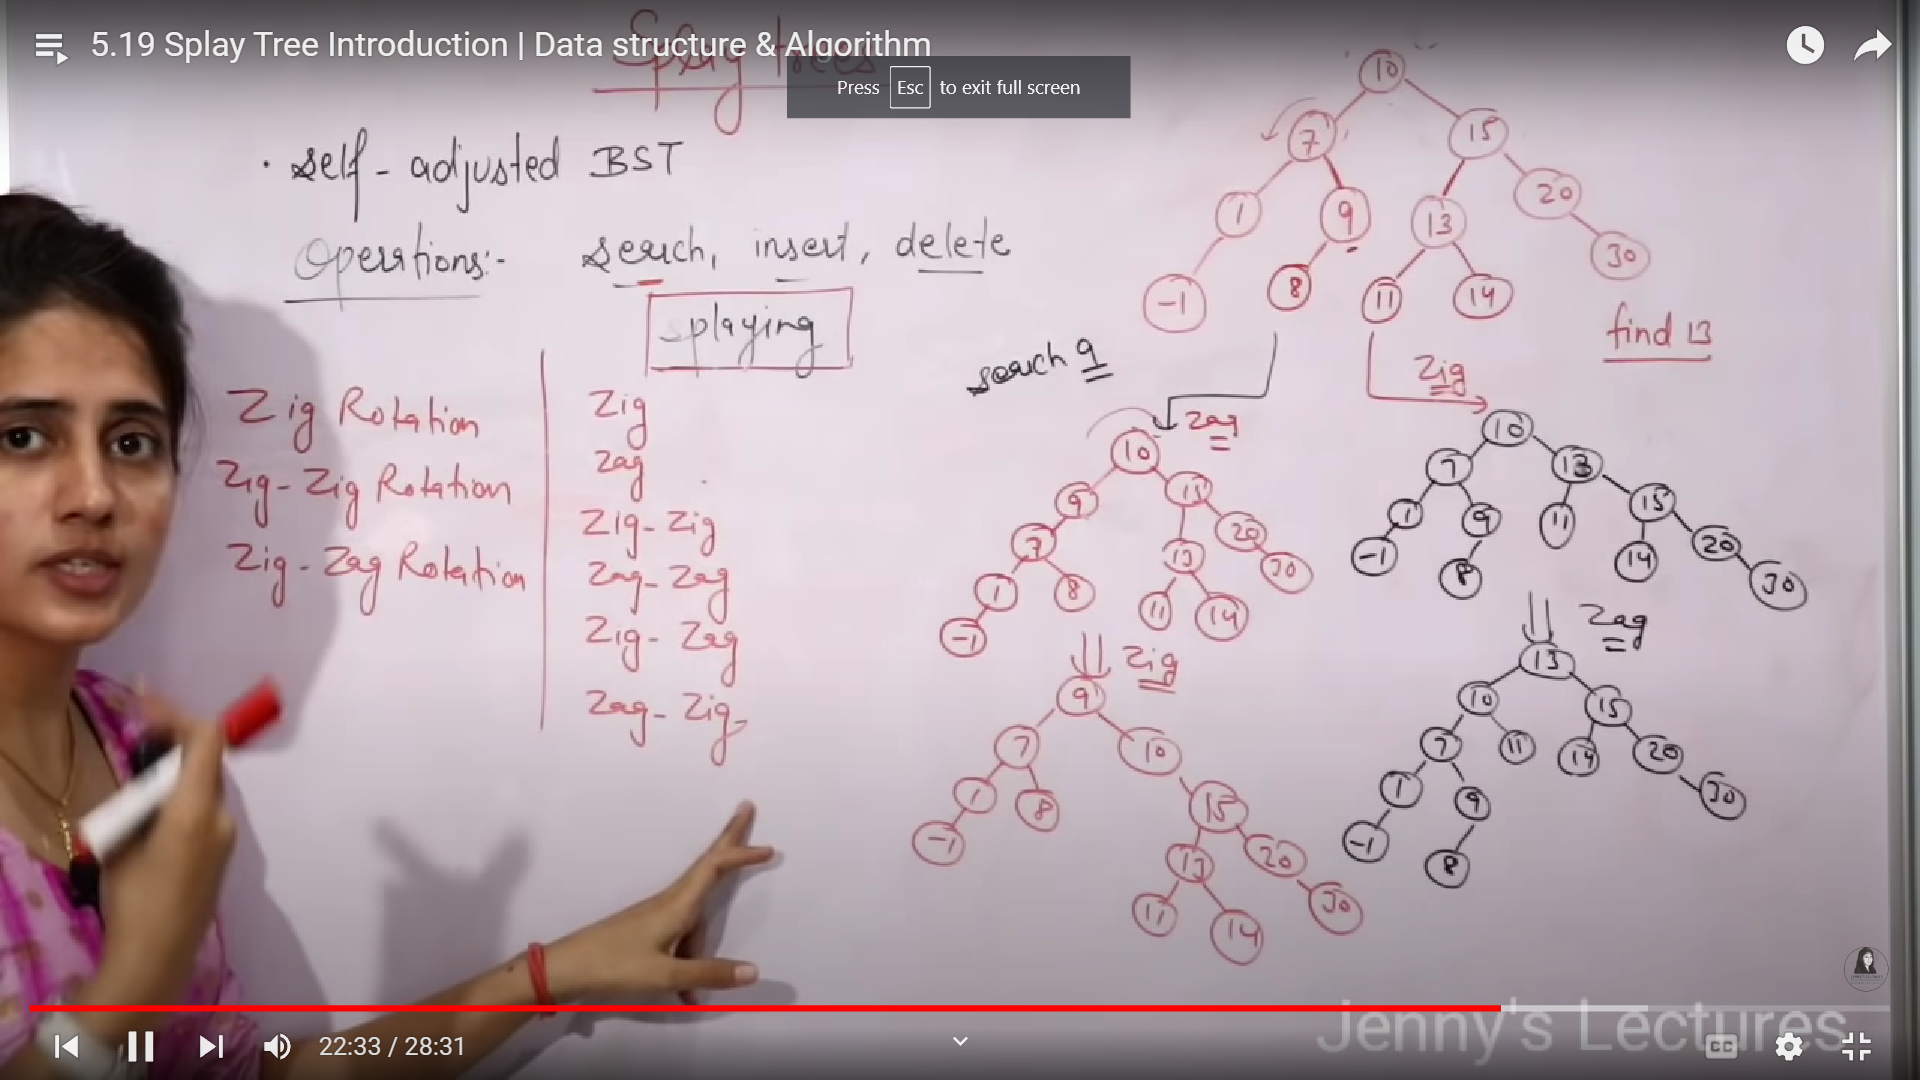 5.19 Splay Tree Introduction | Data structure & Algorithm
Splay trees
Press Esc to exit full screen
· self-adjusted BST
Operations:- search, insert, delete
splaying
Zig Rotation
Zig-Zig Rotation
Zig-Zag Rotation
Zig
Zag
Zig-Zig
Zag-Zag
Zig-Zag
Zag-Zig
10
7 15
1 9 13 20
-1 8 11 14 30
find 13
search 9
Zag
10
9 15
7 13 20
1 8 11 14 30
-1
Zig
9
7 10
1 8 15
-1 13 20
11 14 30
Zig
10
7 13
1 9 11 15
-1 8 14 20
30
Zag
13
10 15
7 11 14 20
1 9 30
-1 8
Jenny's Lectures
22:33 / 28:31
CC